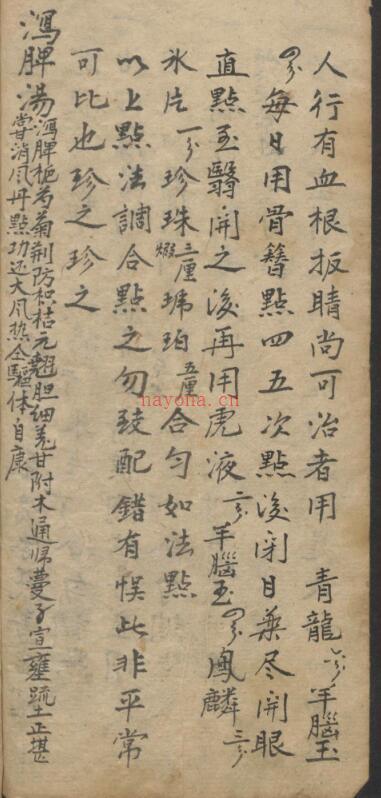 人行有血根扳睛尚可治者用 青龍六分 羊腦玉
四分每日用骨簪點四五次點後閉目藥尽開眼
直點至翳開之後再用虎液二分 羊腦玉四分鳳麟三分
氷片一分珍珠三厘煅琥珀五厘合匀如法點
以上點法調合點之勿致配錯有悮此非平常
可比也珍之珍之
瀉脾湯瀉脾梔芍菊荆防枳桔元翹胆細羗甘附木通歸蔓子宣壅疏土正堪
嘗消風丹點功还大风热仝驅体自康
nayona.cn